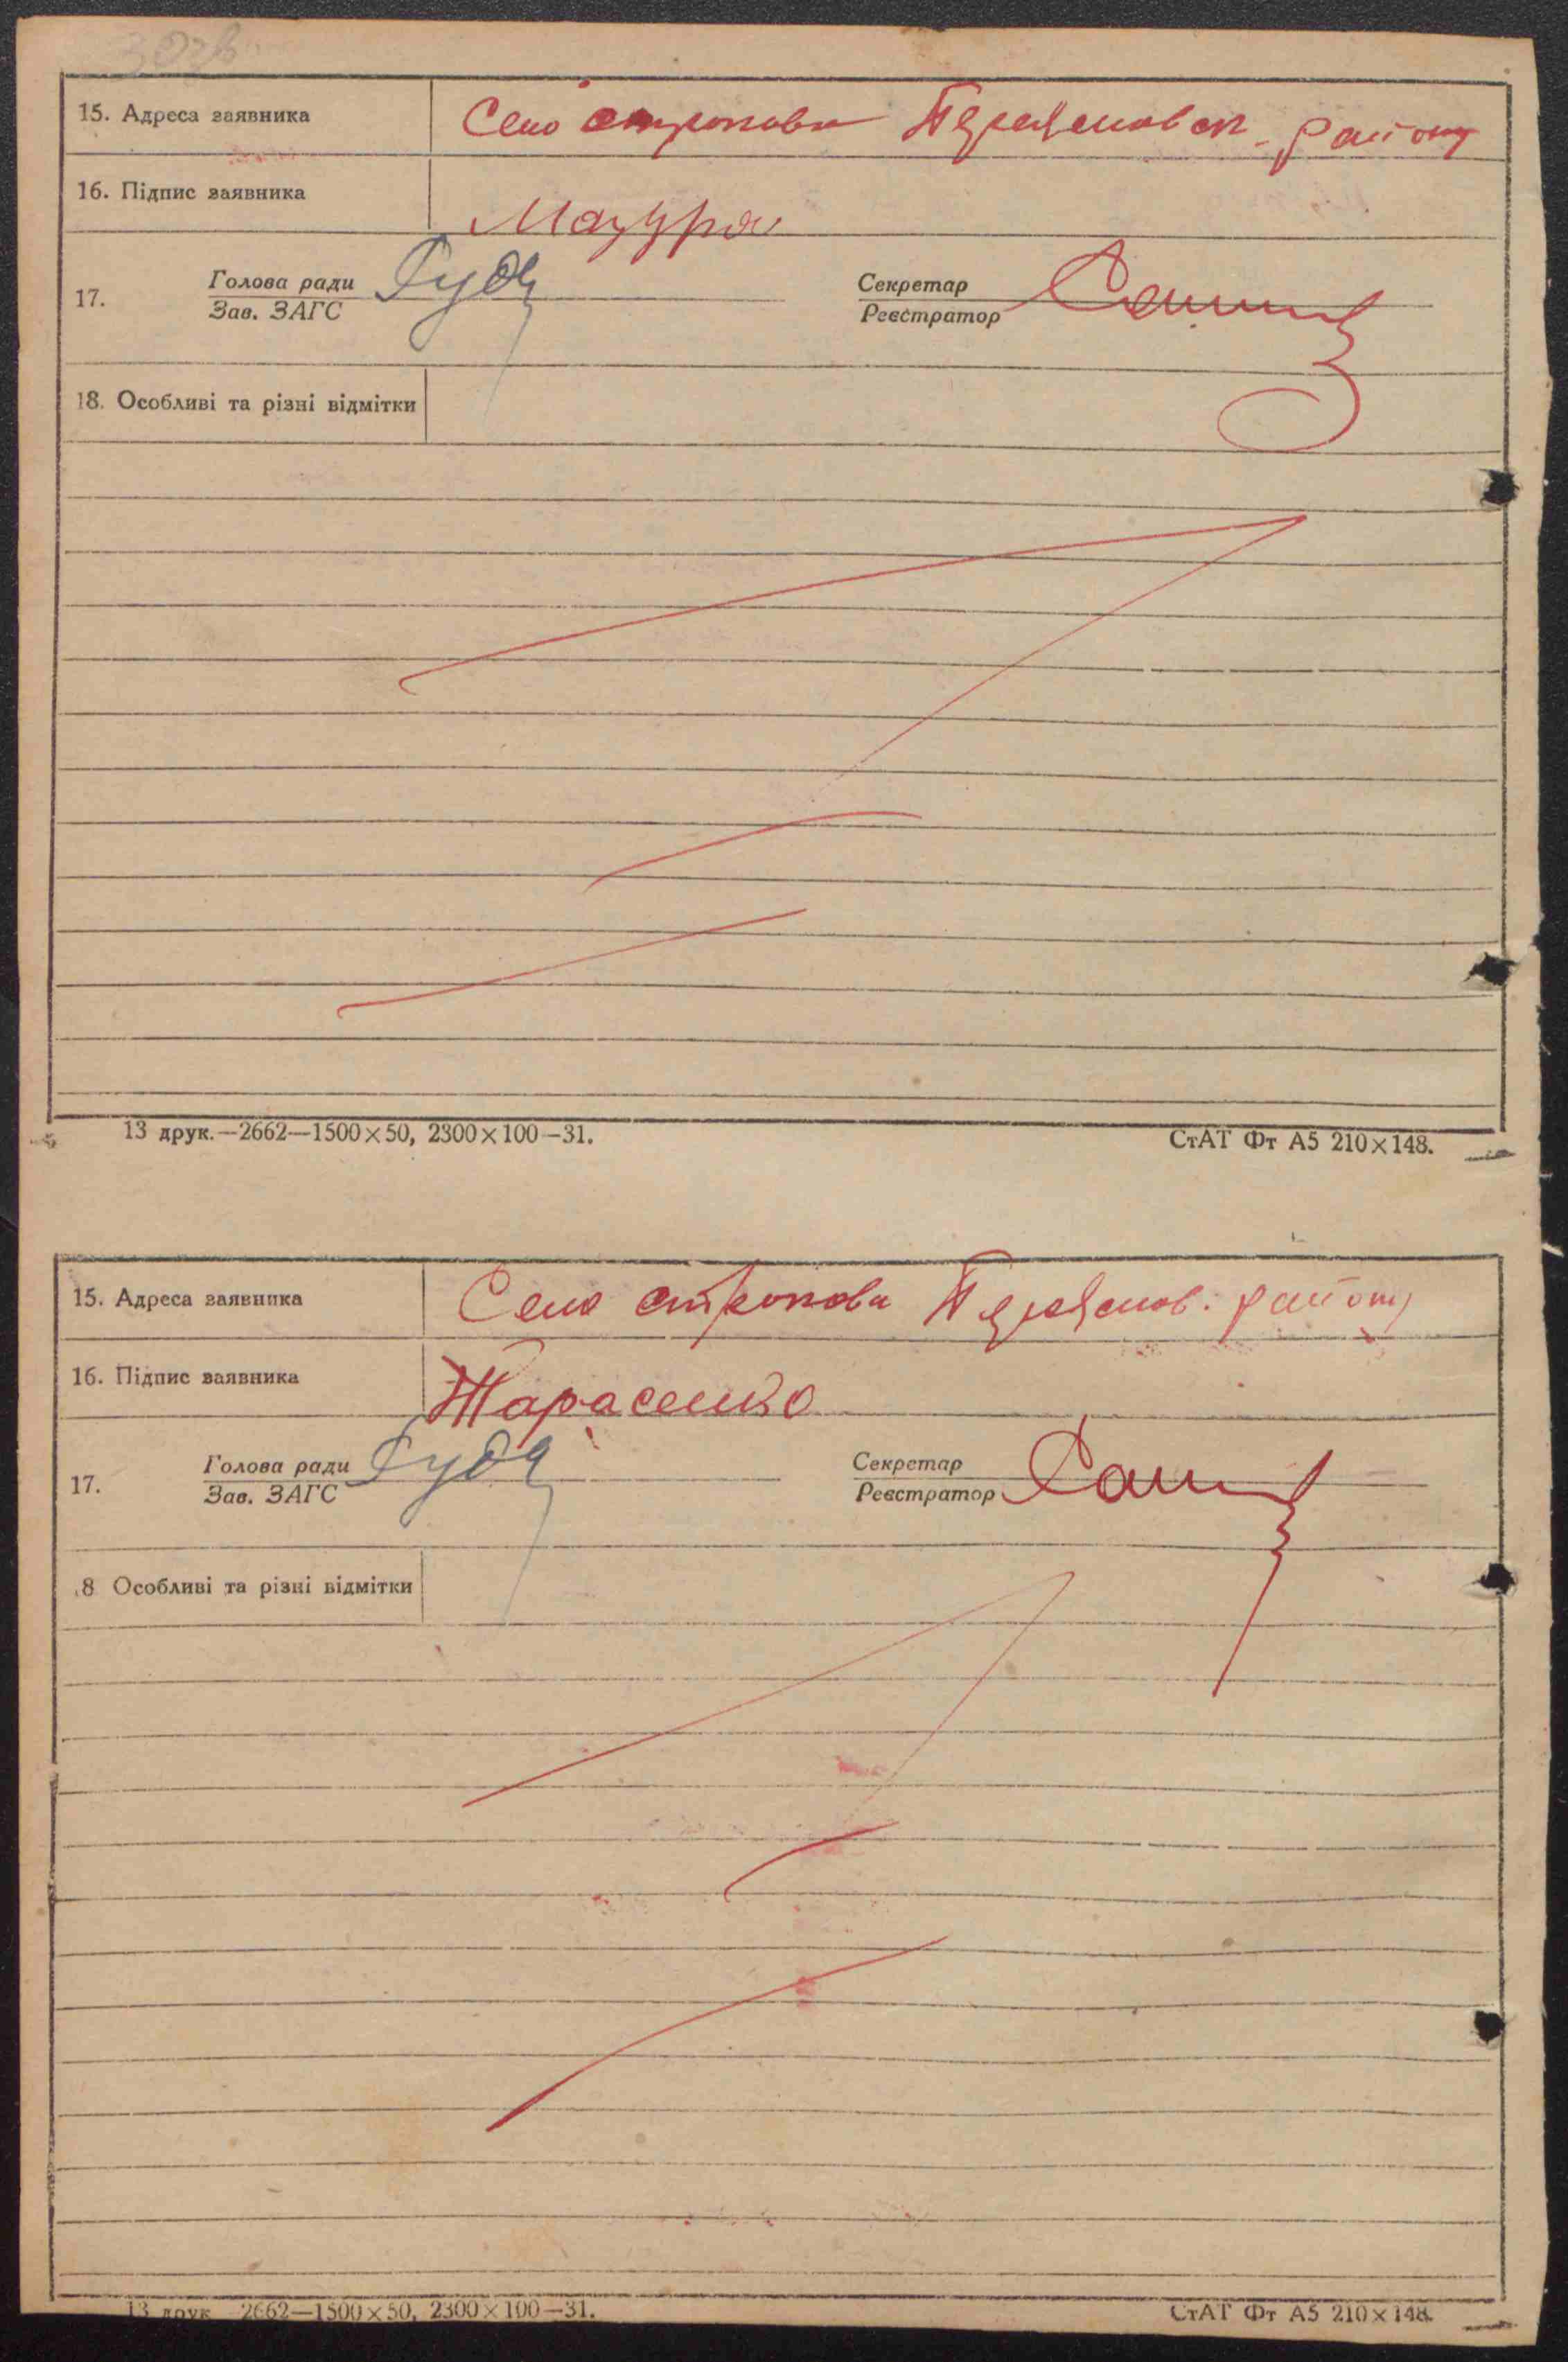 302в
15. Адреса заявника Село строкова Переяславск. району
16. Підпис заявника Мазура
17. Голова ради Гуда Секретар
Зав. ЗАГС Реєстратор
18. Особливі та різні відмітки
13 друк.—2662—1500×50, 2300×100—31. СтАТ Фт А5 210×148.
15. Адреса заявника Село строкова Переяслов. району
16. Підпис заявника Тарасенко
17. Голова ради Гуда Секретар
Зав. ЗАГС Реєстратор
8 Особливі та різні відмітки
13 друк 2662—1500×50, 2300×100—31. СтАТ Фт А5 210×148.